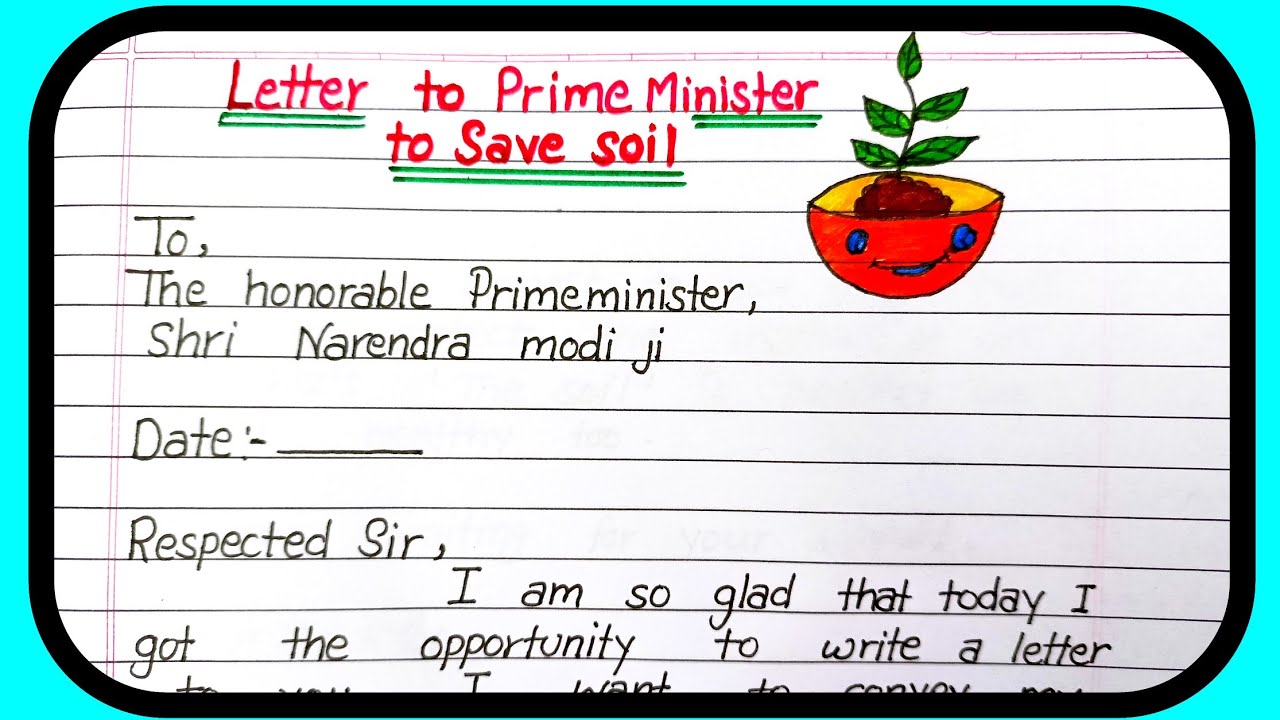 Letter to Prime Minister
to Save soil
To,
The honorable Primeminister,
Shri Narendra modi ji
Date:- ______
Respected Sir,
I am so glad that today I
got the opportunity to write a letter
to you. I want to convey my